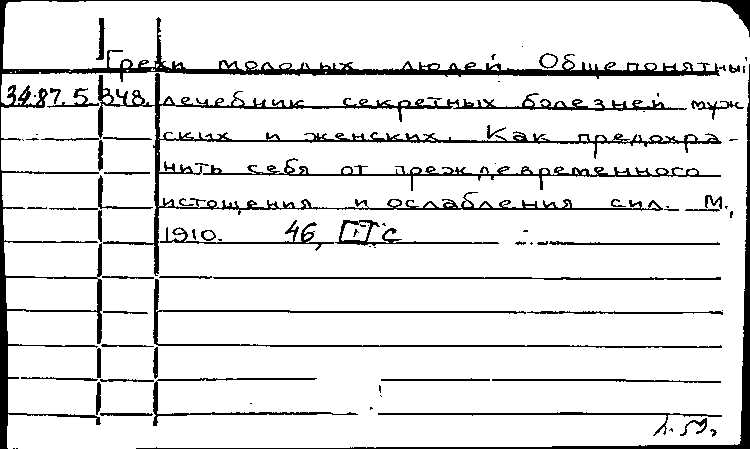 Грехи молодых людей Общепонятный
34.87.5.348. лечебник секретных болезней муж
ских и женских. Как предохра-
нить себя от преждевременного
истощения и ослабления сил. М.,
1910. 46, [1] с